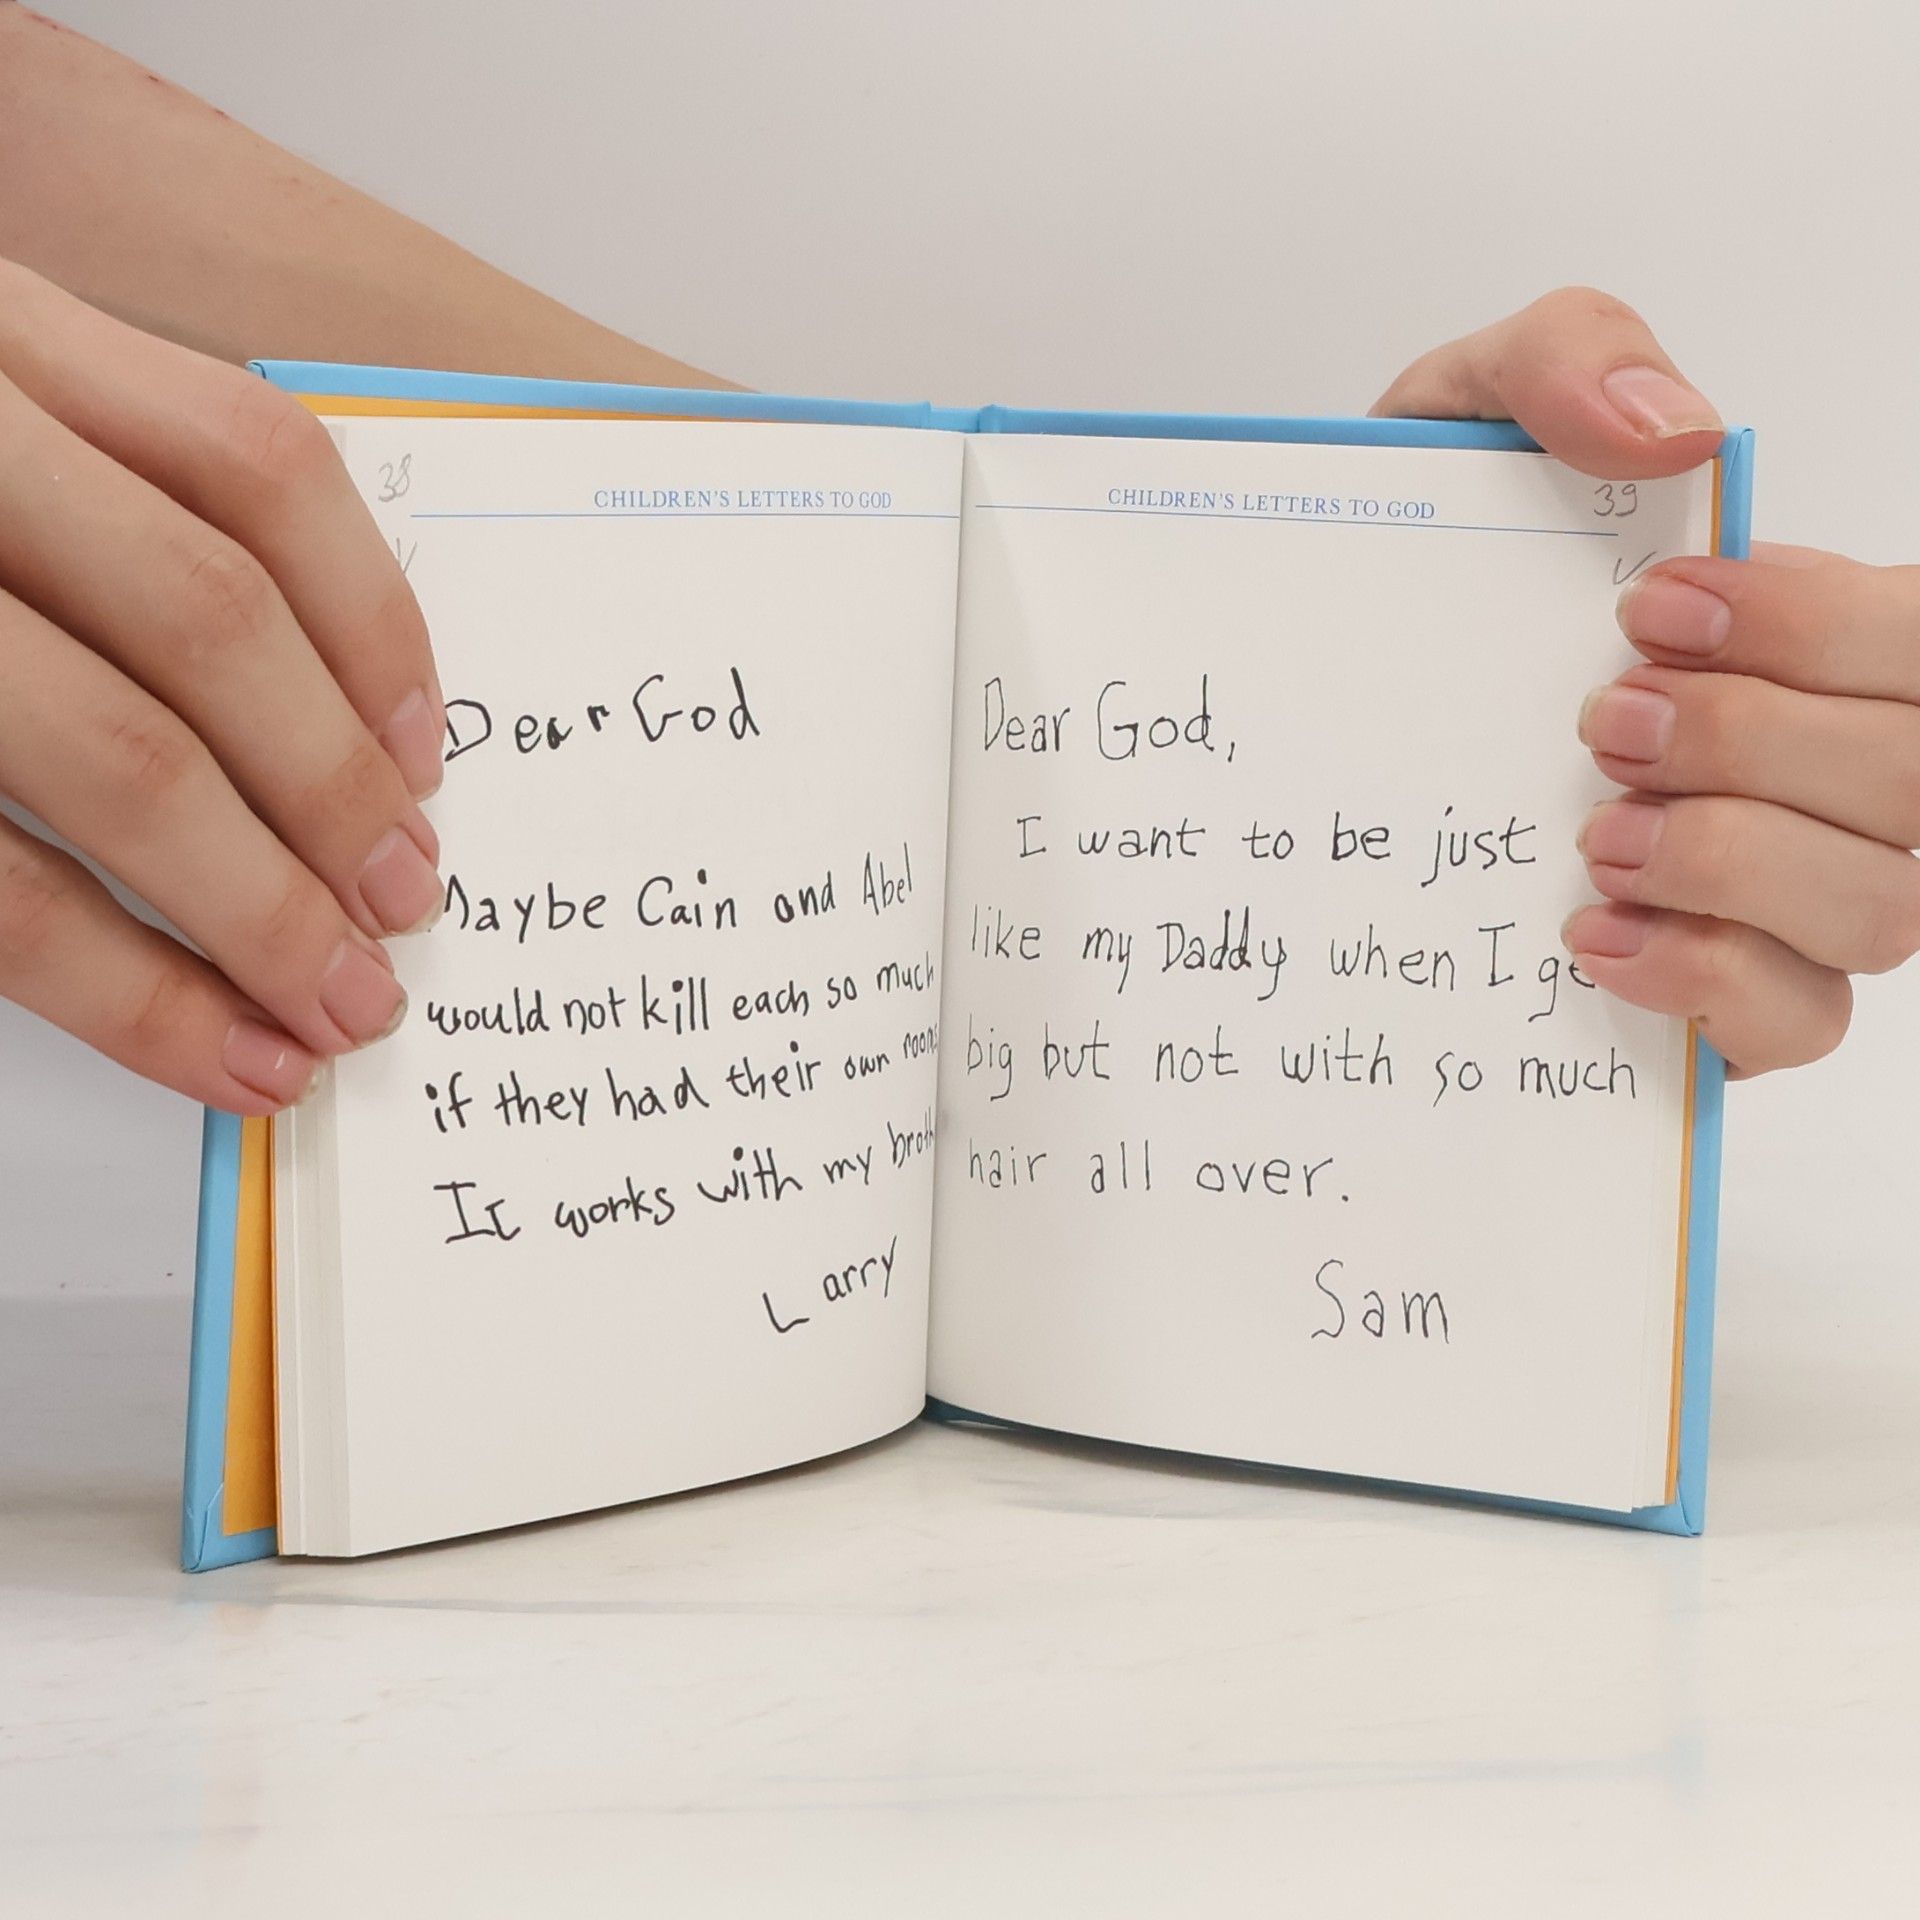 38
CHILDREN'S LETTERS TO GOD
Dear God
Maybe Cain and Abel
would not kill each so much
if they had their own rooms
It works with my
Larry
CHILDREN'S LETTERS TO GOD
39
Dear God,
I want to be just
like my Daddy when I
big but not with so much
hair all over.
Sam